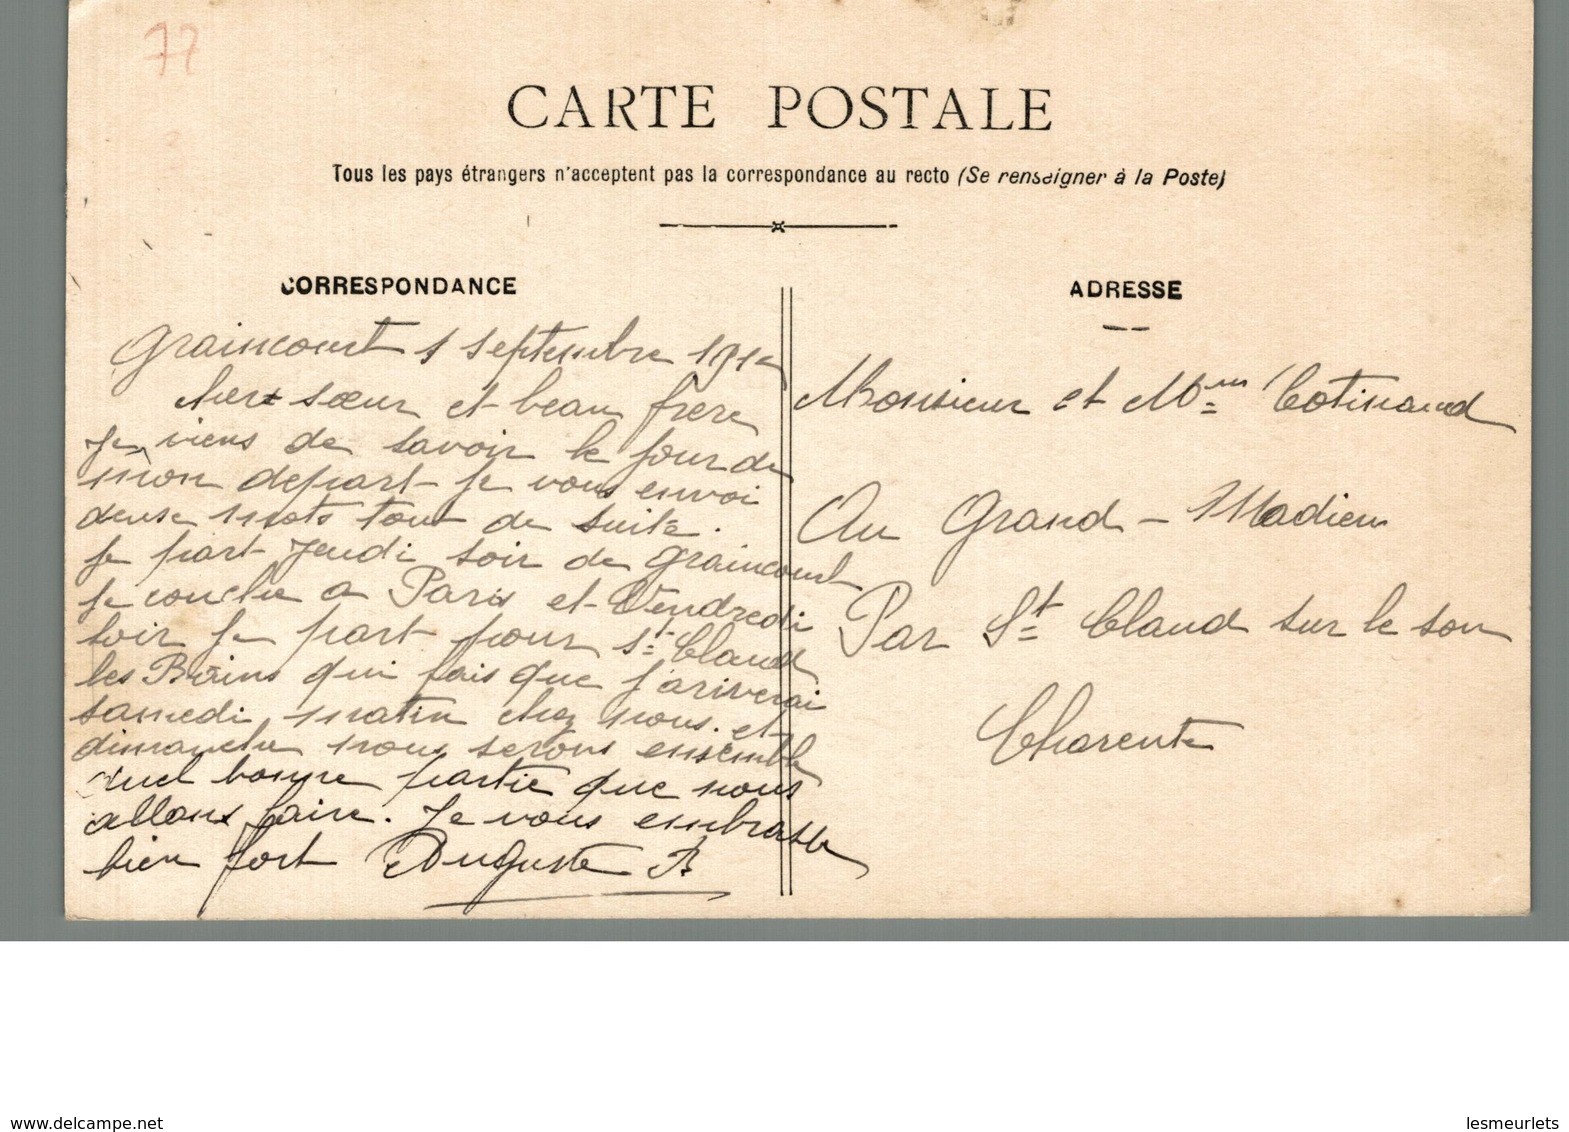 77
CARTE POSTALE
Tous les pays étrangers n'acceptent pas la correspondance au recto (Se renseigner à la Poste)
CORRESPONDANCE
Graincourt 1 septembre 1912
cher sœur et beau frere
Je viens de savoir le jour de
mon depart je vous envoi
deux mots tout de suite.
Je part Jeudi soir de Graincourt
Je couche a Paris et Vendredi
soir Je part pour St Claud
les Bains qui fais que j'ariverai
samedi matin chez nous. et
dimanche nous serons ensemble
quel bonne partie que nous
allons faire. Je vous embrasse
bien fort Auguste B
ADRESSE
Monsieur et Mme Cotinaud
Au Grand-Madieu
Par St Claud sur le son
Charente
www.delcampe.net
lesmeurlets